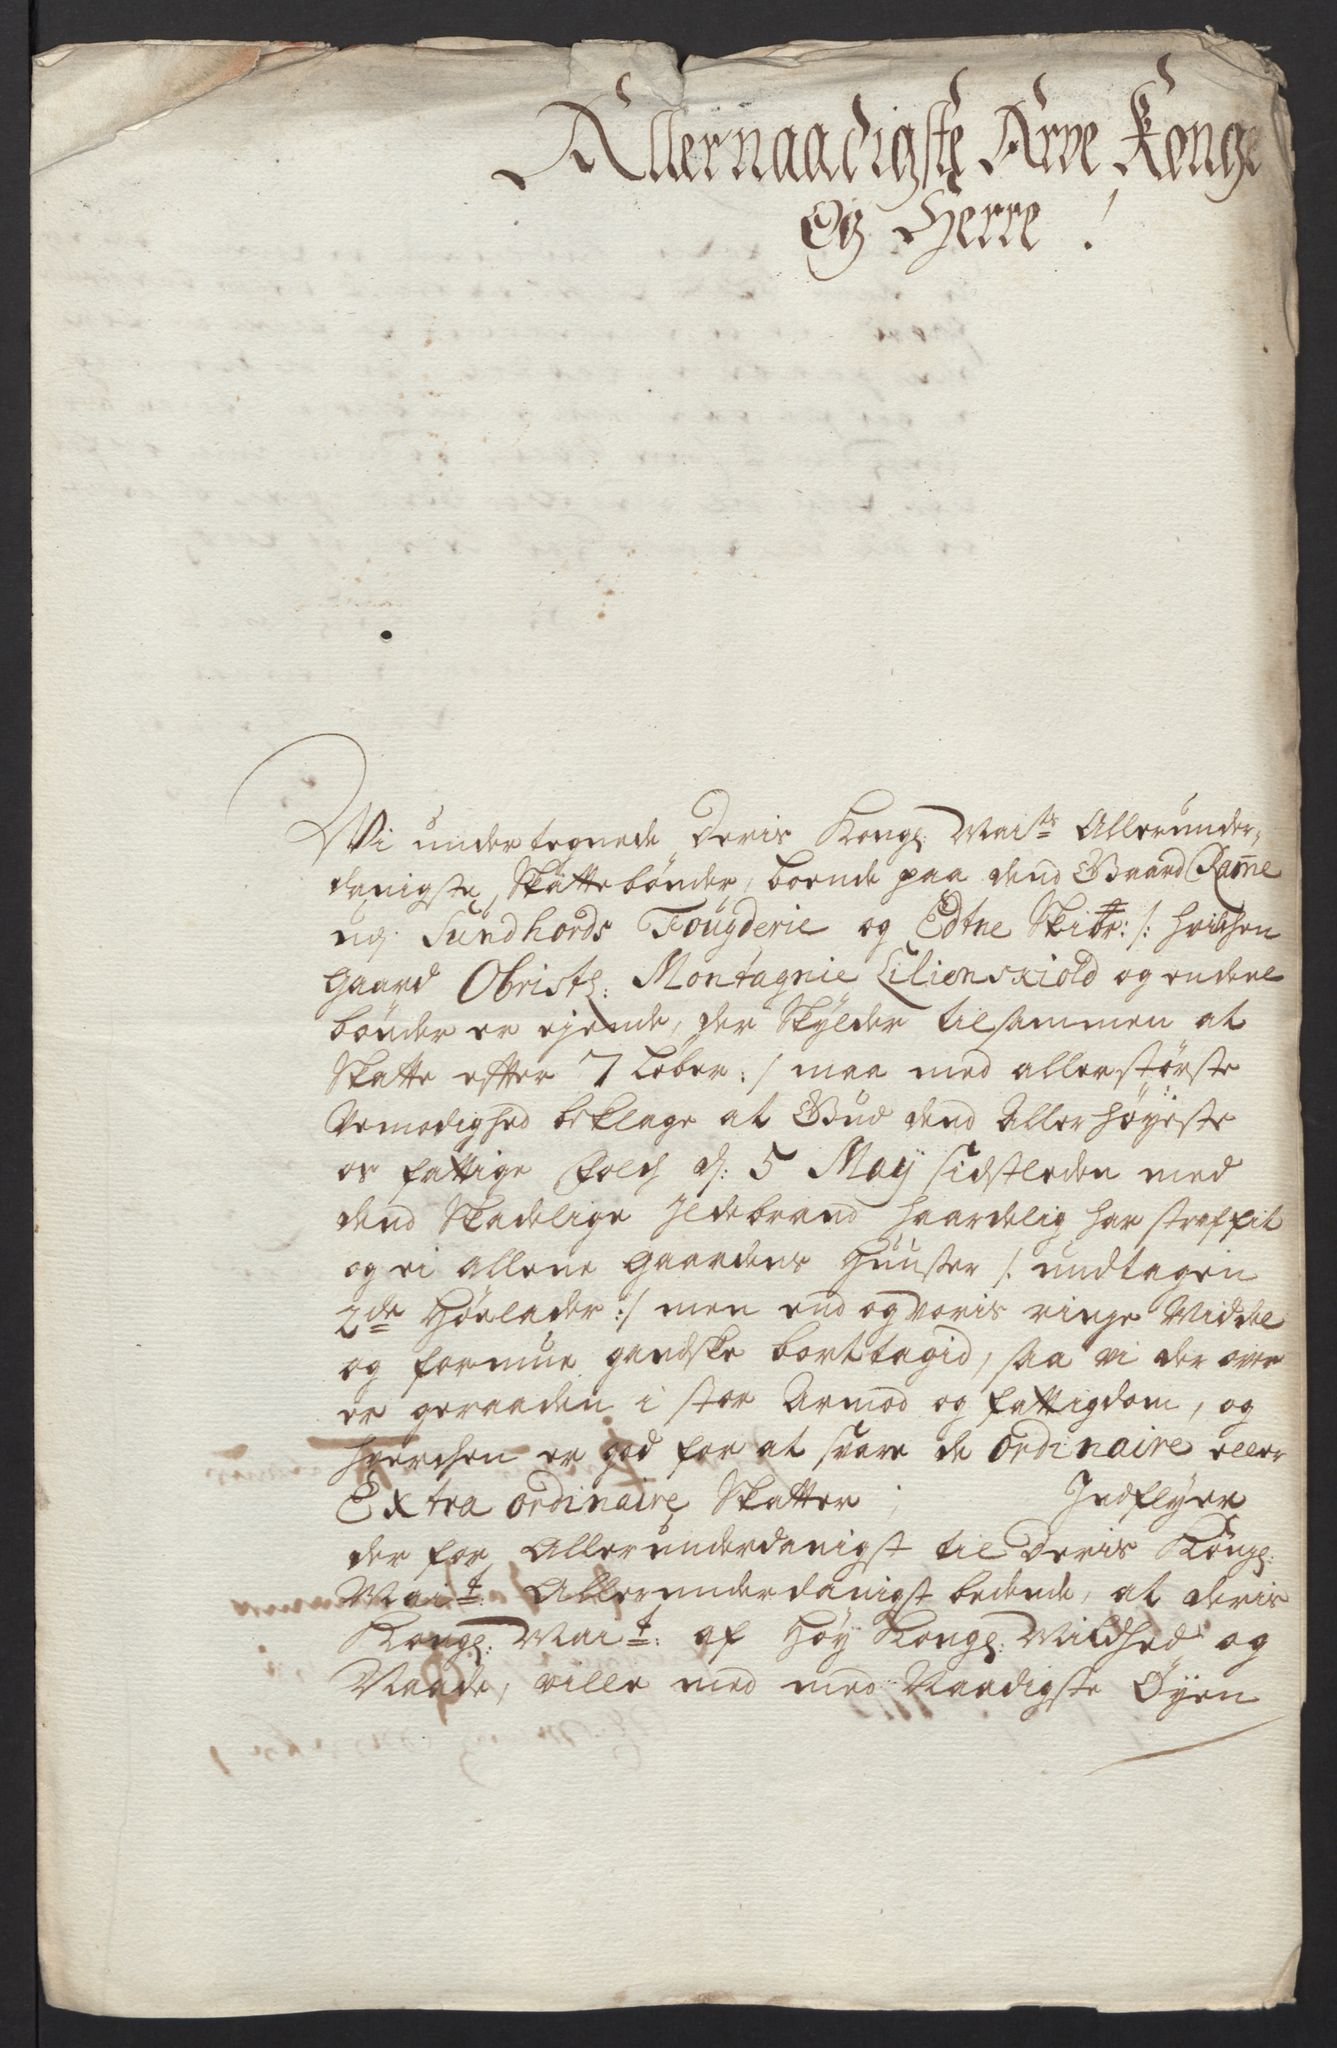 Allernaadigste Arve Konge
Og Herre !
Wi under tegnede Deris Kongl: Maits Allerunder,,
danigste Skattebønder, boende paa dend Gaard Ramе
udj Sundhords Fougderie og Edtne Skibr: /: hvilchen
gaard Obristl: Montagnie Lilienskiold og endeel
bønder er ejende, der Skylder tilsammen at
Skatte efter 7 Løber :/ maa med allerstørste
Vemodighed beklage at Gud dend Allerhøyeste
os fattige Folch d: 5 Maij sidstleden med
dend Skadelige Ildebrand haardelig har straffit
og ei allene gaardens Huuser /: undtagen
2de Høelader :/ men end og voris ringe Middel
og formue gandske borttagid, saa vi der over
er geraaden i stor Armod og fattigdom, og
hverchen er god for at svare de ordinaire eller
Extra ordinaire Skatter ; Indflyer
der for Allerunderdanigst til Deris Kongl:
Mait: Allerunderdanigst bedende, at deris
Kongl: Mait: af Høy Kongl: Mildhed og
Naade, ville med med Naadigste Øyen